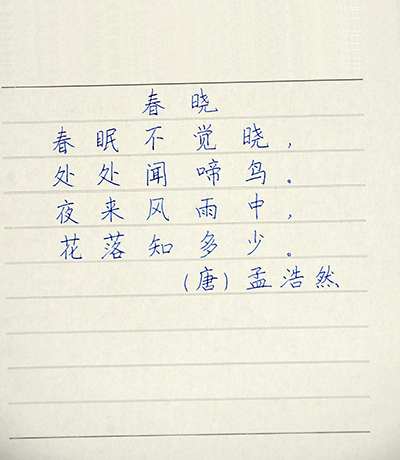 春晓
春眠不觉晓，
处处闻啼鸟。
夜来风雨中，
花落知多少。
（唐）孟浩然